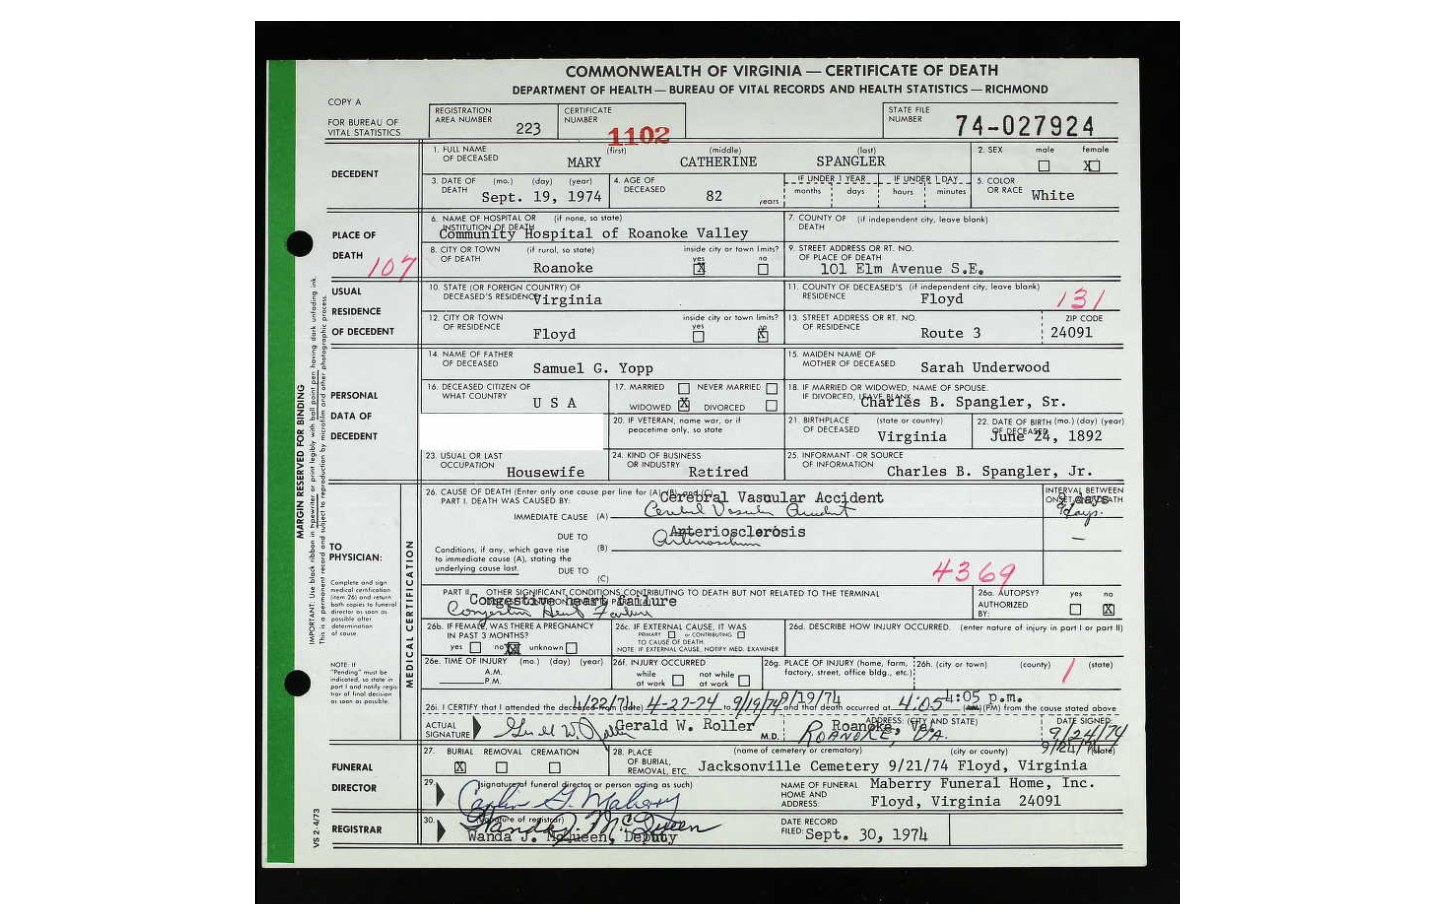 COMMONWEALTH OF VIRGINIA — CERTIFICATE OF DEATH
DEPARTMENT OF HEALTH — BUREAU OF VITAL RECORDS AND HEALTH STATISTICS — RICHMOND
COPY A
FOR BUREAU OF VITAL STATISTICS
REGISTRATION AREA NUMBER 223
CERTIFICATE NUMBER 1102
STATE FILE NUMBER 74-027924
DECEDENT
1. FULL NAME OF DECEASED (first) (middle) (last)
MARY CATHERINE SPANGLER
2. SEX male female X
3. DATE OF DEATH (mo.) (day) (year) Sept. 19, 1974
4. AGE OF DECEASED 82 years
IF UNDER 1 YEAR months days
IF UNDER 1 DAY hours minutes
5. COLOR OR RACE White
PLACE OF DEATH
107
6. NAME OF HOSPITAL OR INSTITUTION OF DEATH (if none, so state)
Community Hospital of Roanoke Valley
7. COUNTY OF DEATH (if independent city, leave blank)
8. CITY OR TOWN OF DEATH (if rural, so state) Roanoke
inside city or town limits? yes X no
9. STREET ADDRESS OR RT. NO. OF PLACE OF DEATH
101 Elm Avenue S.E.
USUAL RESIDENCE OF DECEDENT
10. STATE (OR FOREIGN COUNTRY) OF DECEASED'S RESIDENCE Virginia
11. COUNTY OF DECEASED'S RESIDENCE (if independent city, leave blank) Floyd
131
12. CITY OR TOWN OF RESIDENCE Floyd
inside city or town limits? yes no X
13. STREET ADDRESS OR RT. NO. OF RESIDENCE Route 3
ZIP CODE 24091
PERSONAL DATA OF DECEDENT
14. NAME OF FATHER OF DECEASED Samuel G. Yopp
15. MAIDEN NAME OF MOTHER OF DECEASED Sarah Underwood
16. DECEASED CITIZEN OF WHAT COUNTRY U S A
17. MARRIED NEVER MARRIED
WIDOWED X DIVORCED
18. IF MARRIED OR WIDOWED, NAME OF SPOUSE. IF DIVORCED, LEAVE BLANK
Charles B. Spangler, Sr.
20. IF VETERAN, name war, or if peacetime only, so state
21. BIRTHPLACE OF DECEASED (state or country) Virginia
22. DATE OF BIRTH (mo.) (day) (year) OF DECEASED June 24, 1892
23. USUAL OR LAST OCCUPATION Housewife
24. KIND OF BUSINESS OR INDUSTRY Retired
25. INFORMANT OR SOURCE OF INFORMATION Charles B. Spangler, Jr.
MARGIN RESERVED FOR BINDING
TO PHYSICIAN:
Complete and sign medical certification (item 26) and return both copies to funeral director as soon as possible after determination of cause.
NOTE: If "Pending" must be indicated, so state in part I and notify registrar of final decision as soon as possible.
MEDICAL CERTIFICATION
26. CAUSE OF DEATH (Enter only one cause per line for (A), (B), and (C))
PART I. DEATH WAS CAUSED BY:
Cerebral Vascular Accident
IMMEDIATE CAUSE (A) Cerebral Vascular Accident
INTERVAL BETWEEN ONSET AND DEATH
days
DUE TO (B) Anteriosclerosis
—
Conditions, if any, which gave rise to immediate cause (A), stating the underlying cause last.
DUE TO (C)
4369
PART II. OTHER SIGNIFICANT CONDITIONS CONTRIBUTING TO DEATH BUT NOT RELATED TO THE TERMINAL
Congestive heart failure
Congestive Heart Failure
26a. AUTOPSY? yes no X
AUTHORIZED BY:
26b. IF FEMALE, WAS THERE A PREGNANCY IN PAST 3 MONTHS?
yes no X unknown
26c. IF EXTERNAL CAUSE, IT WAS
PRIMARY or CONTRIBUTING
TO CAUSE OF DEATH.
NOTE: IF EXTERNAL CAUSE, NOTIFY MED. EXAMINER
26d. DESCRIBE HOW INJURY OCCURRED. (enter nature of injury in part I or part II)
26e. TIME OF INJURY (mo.) (day) (year)
A.M.
P.M.
26f. INJURY OCCURRED
while at work not while at work
26g. PLACE OF INJURY (home, farm, factory, street, office bldg., etc.)
26h. (city or town) (county) (state)
1
26i. I CERTIFY that I attended the deceased from (date) 4/22/74 4-22-74 to 9/19/74 9/19/74 and that death occurred at 4:05 4:05 p.m. (PM) from the cause stated above
ACTUAL SIGNATURE Gerald W. Roller M.D.
ADDRESS: (CITY AND STATE) Roanoke, Va.
ROANOKE, VA.
DATE SIGNED 9/24/74
9/24/74 (date)
FUNERAL DIRECTOR
27. BURIAL X REMOVAL CREMATION
28. PLACE OF BURIAL, REMOVAL, ETC. (name of cemetery or crematory) (city or county) (state)
Jacksonville Cemetery 9/21/74 Floyd, Virginia
29. (signature of funeral director or person acting as such)
NAME OF FUNERAL HOME AND ADDRESS: Maberry Funeral Home, Inc.
Floyd, Virginia 24091
REGISTRAR
30. (signature of registrar)
Wanda J. McQueen
Wanda J. McQueen, Deputy
DATE RECORD FILED: Sept. 30, 1974
VS 2-4/73